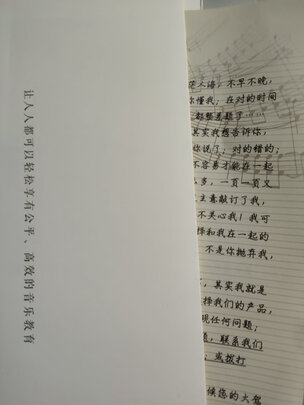 让人人都可以轻松享有公平、高效的音乐教育
茫人海,不早不晚,
你懂我;在对的时间
都整差题了……
其实我想告诉你,
你说了;对的错的;
不容易才能在一起
么多,一页一页又
主意献订了我,
不关心我!我可
择和我在一起的
不是你抛弃我,
,其实我就是
择我们的产品,
现任何问题;
,联系我们
;或拨打
候您的火驾